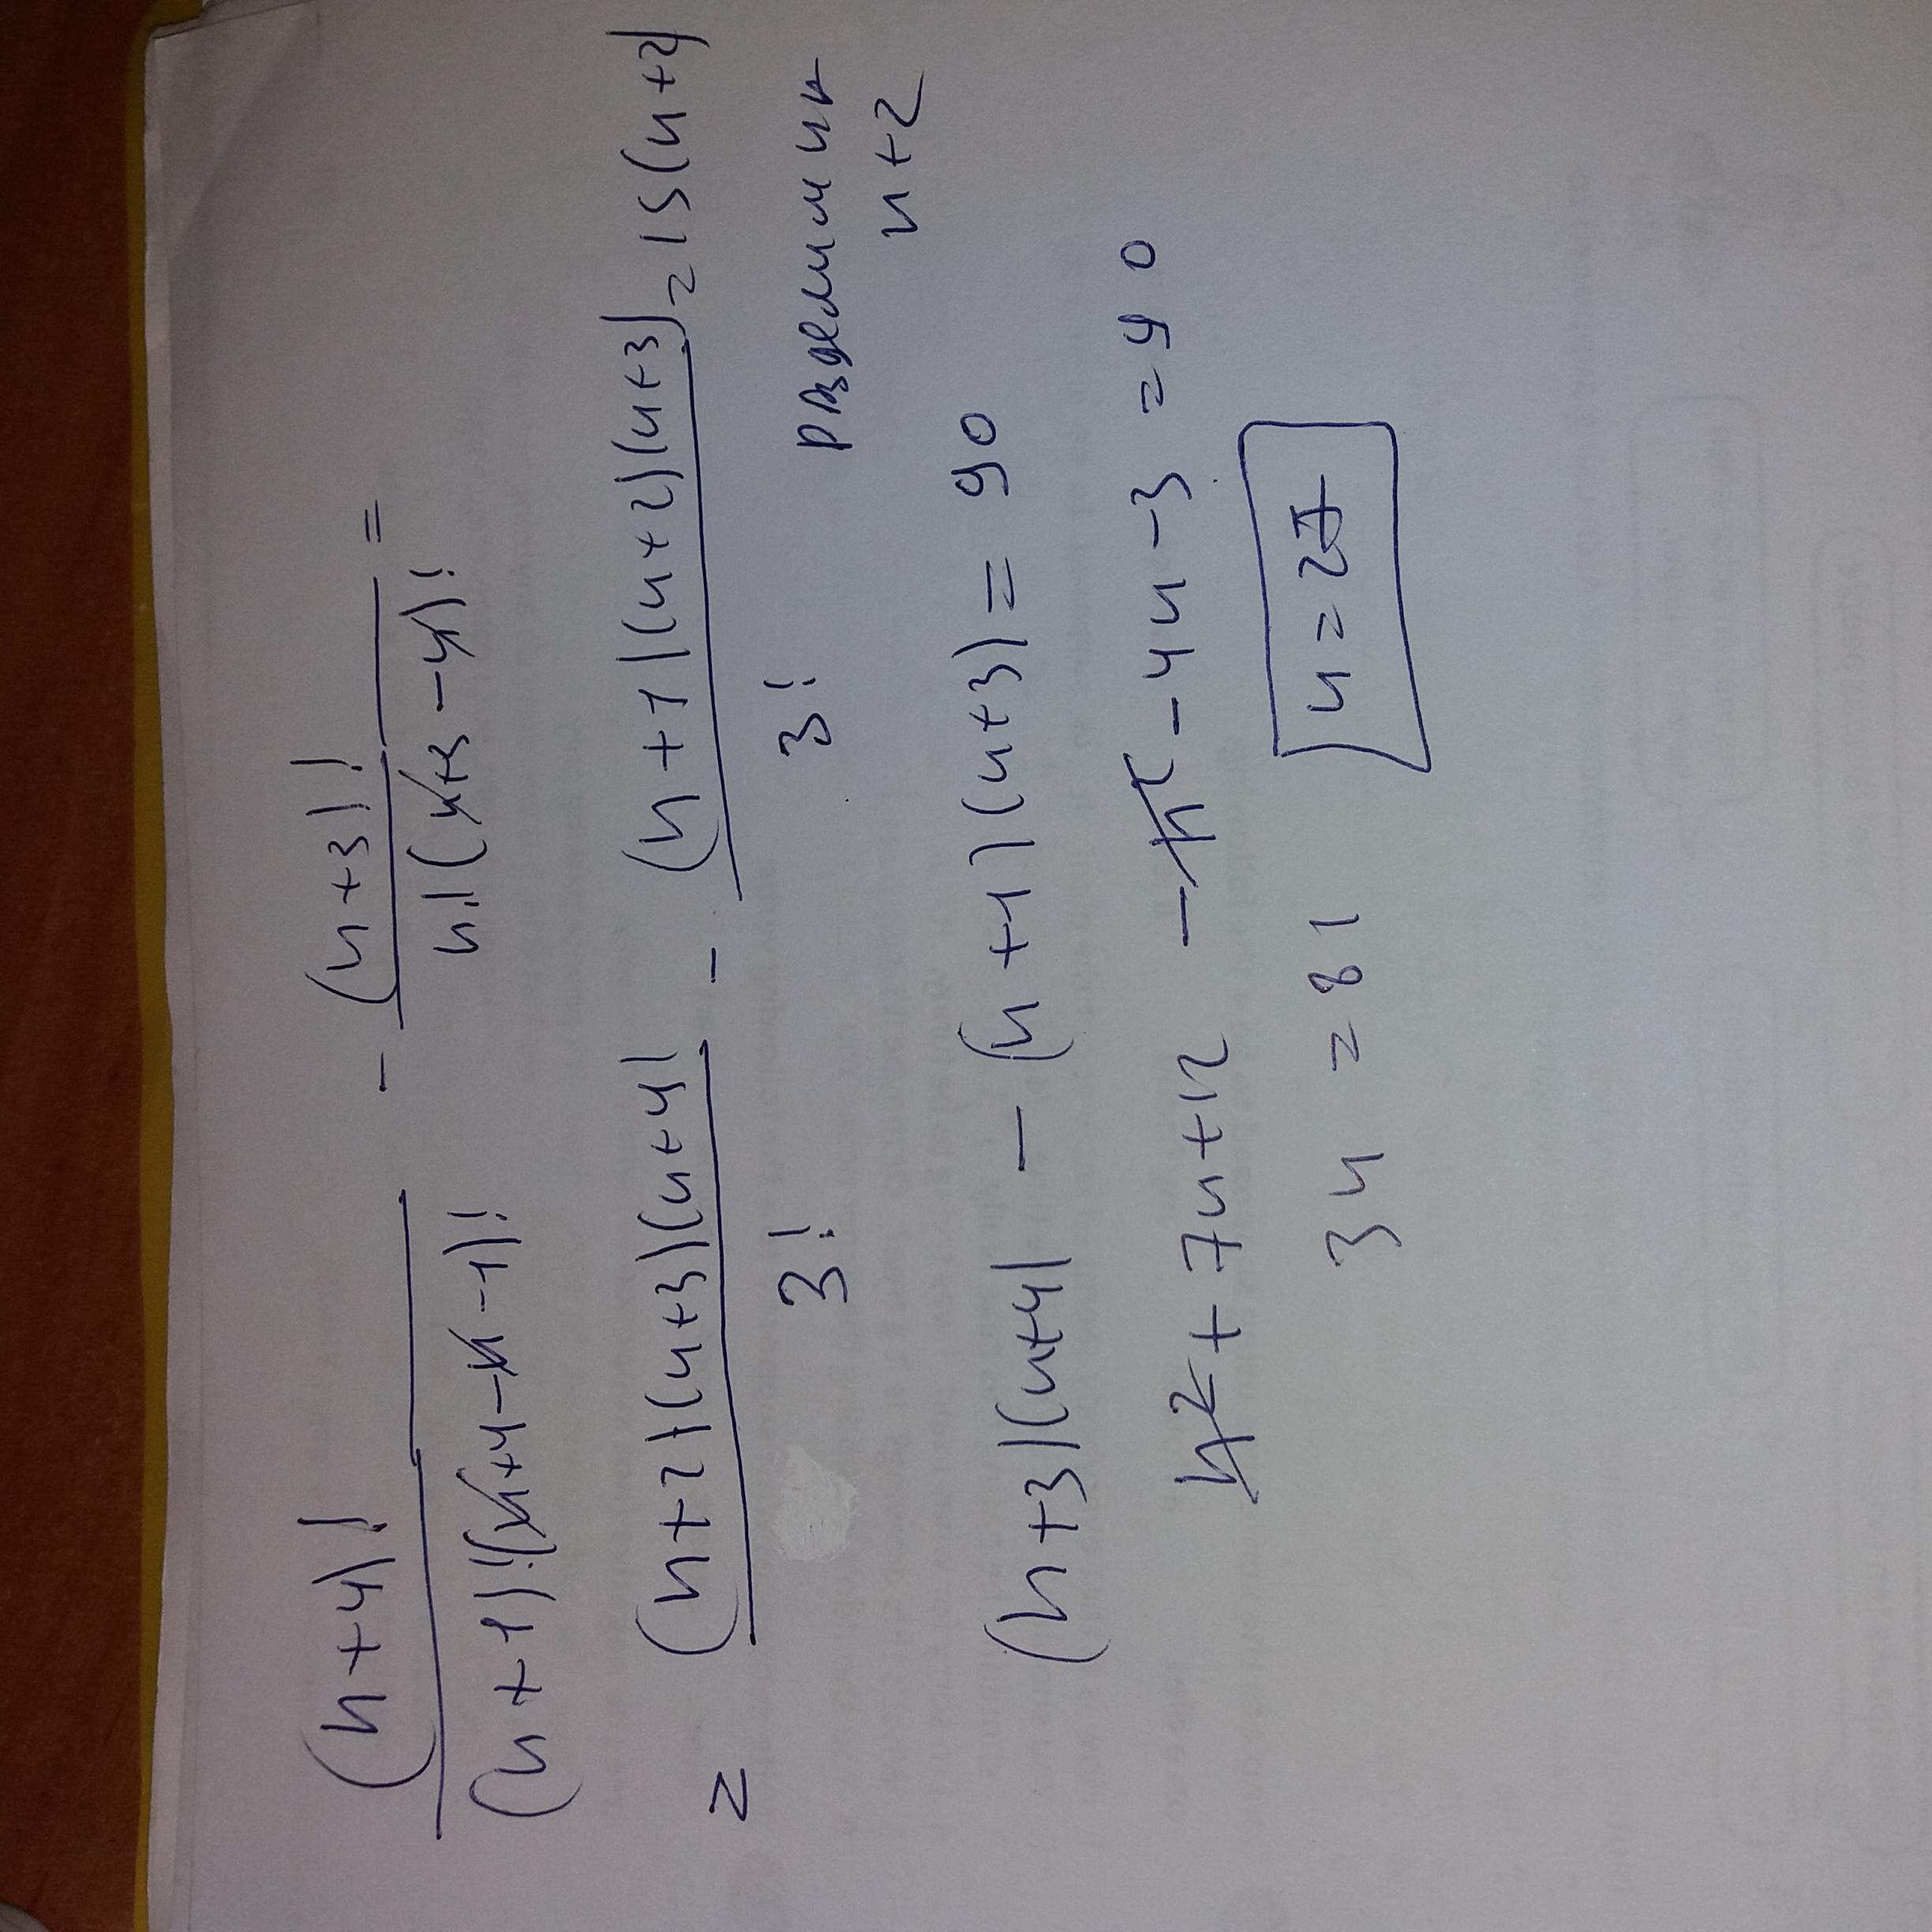 (n+4)! / (n+1)!(n+4-n-1)! - (n+3)! / n!(n+3-n)! =
= (n+2)(n+3)(n+4) / 3! - (n+1)(n+2)(n+3) / 3! = 15(n+2)
разделим на
n+2
(n+3)(n+4) - (n+1)(n+3) = 90
n²+7n+12 - n²-4n-3 = 90
3n = 81 n=27